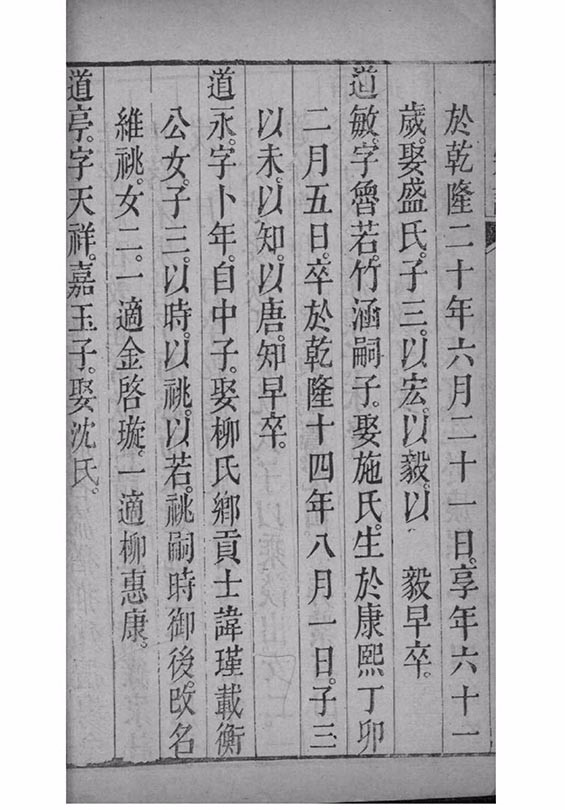 於乾隆二十年六月二十一日。享年六十一
歲。娶盛氏。子三。以宏。以毅。以　毅早卒。
道敏。字魯若。竹涵嗣子。娶施氏。生於康熙丁卯
二月五日。卒於乾隆十四年八月一日。子三
以未。以知。以唐。知早卒。
道永。字卜年。自中子。娶柳氏鄉貢士諱瑾載衡
公女。子三。以時。以祧。以若。祧嗣時御後。改名
維祧。女二。一適金啓璇。一適柳惠康。
道亭。字天祥。嘉玉子。娶沈氏。